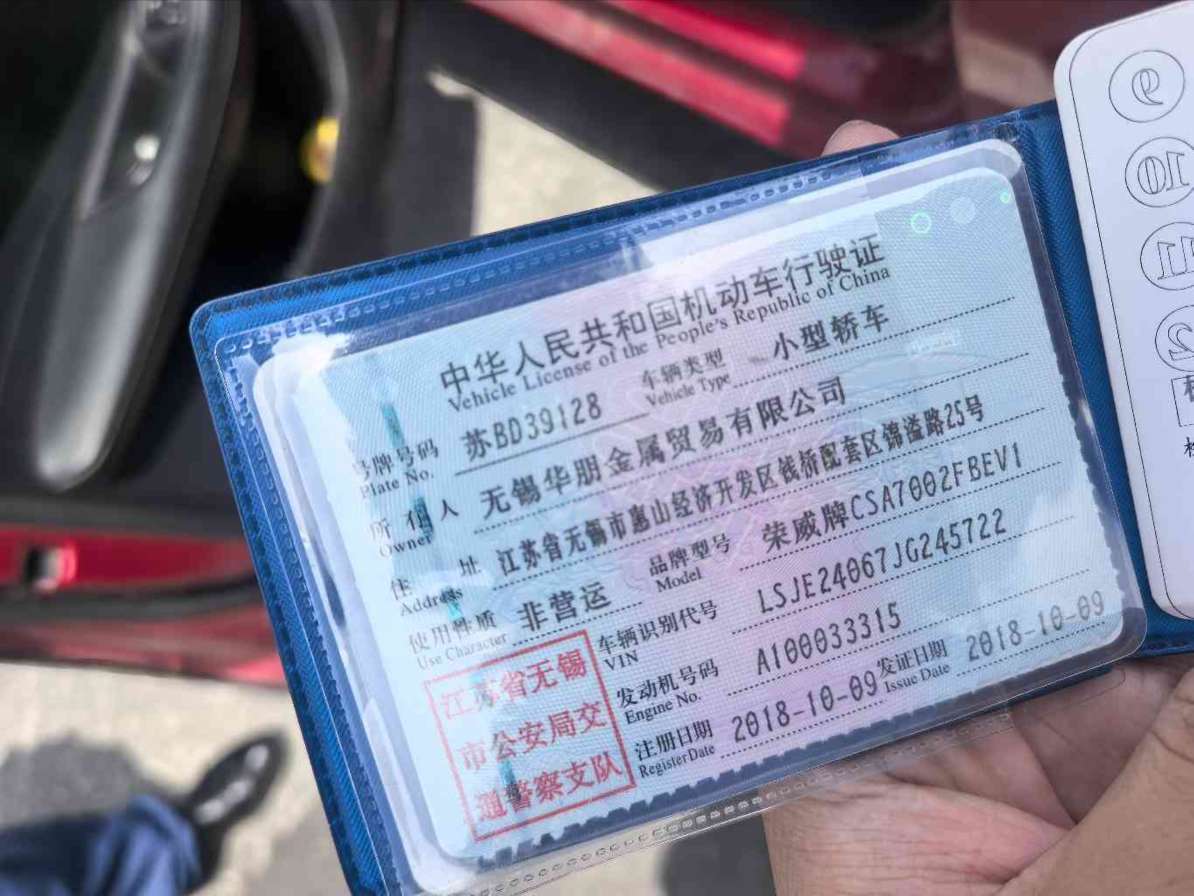 中华人民共和国机动车行驶证
Vehicle License of the People's Republic of China
号牌号码 苏BD39128 车辆类型 小型轿车
Plate No. Vehicle Type
所有人 无锡华朋金属贸易有限公司
Owner
住址 江苏省无锡市惠山经济开发区钱桥配套区锦溢路25号
Address
使用性质 非营运 品牌型号 荣威牌CSA7002FBEV1
Use Character Model
车辆识别代号 LSJE24067JG245722
VIN
发动机号码 A100033315
Engine No.
注册日期 2018-10-09 发证日期 2018-10-09
Register Date Issue Date
江苏省无锡
市公安局交
通警察支队
9
10
11